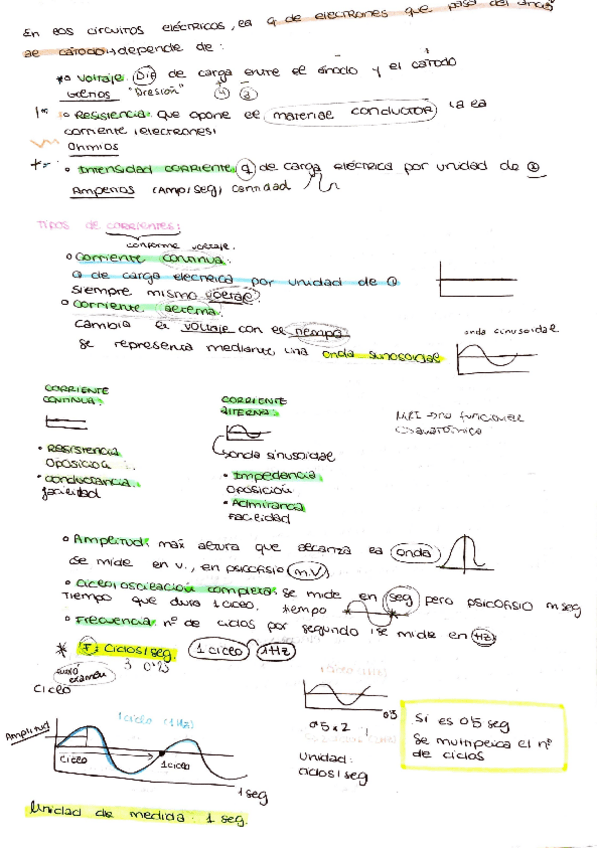 En los circuitos eléctricos, la q de electrones que pasa del ánodo
al cátodo → depende de:
* o Voltaje. Dif de carga entre el ánodo y el cátodo
"Presión"
o Resistencia: que opone el material conductor a la
corriente (electrones)
Ohmios
o Intensidad corriente: q de carga eléctrica por unidad de t
Amperios (Amp/seg) cantidad
Tipos de corrientes:
conforme voltaje.
o Corriente continua:
q de carga eléctrica por unidad de t
siempre mismo voltaje.
o Corriente alterna:
Cambia el voltaje con el tiempo
Se representa mediante una onda sinusoidal
onda sinusoidal
CORRIENTE
CONTINUA:
• Resistencia
Oposición
• Conductancia.
facilidad
CORRIENTE
ALTERNA:
onda sinusoidal
• Impedancia
Oposición
• Admitancia
Facilidad
o Amplitud: max altura que alcanza la onda
Se mide en v., en psicofisio m.V
o Ciclo/oscilación completa: se mide en seg pero psicofisio mseg
Tiempo que dura 1 ciclo.
tiempo
o Frecuencia: nº de ciclos por segundo (se mide en Hz)
* F: Ciclos/seg. 1 ciclo 1Hz
examen
Ciclo
Amplitud
1 ciclo (1Hz)
ciclo
1 ciclo
1 seg
Unidad de medida: 1 seg.
0'5
0'5 x 2
Unidad:
ciclos/seg
Si es 0'5 seg
Se multiplica el nº
de ciclos